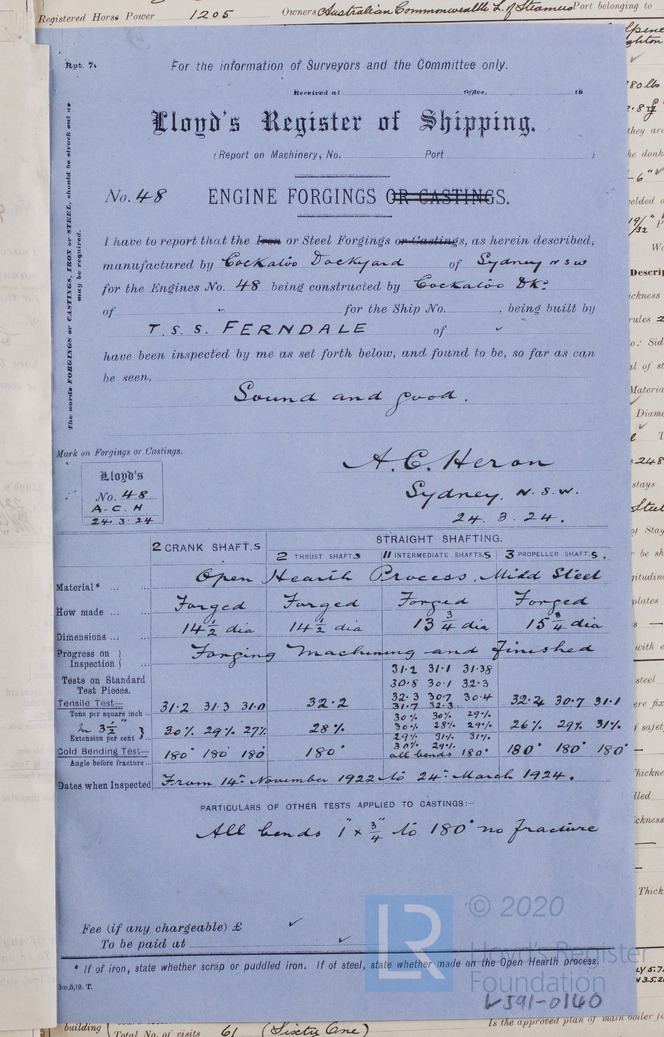 Registered Horse Power 1205 Owners Australian Commonwealth L. of Steamers Port belonging to
Rpt. 7.
For the information of Surveyors and the Committee only.
Received at Office, 19
Lloyd's Register of Shipping.
(Report on Machinery, No. Port )
No. 48 ENGINE FORGINGS OR CASTINGS.
The words FORGINGS or CASTINGS, IRON or STEEL, should be struck out as
may be required.
I have to report that the Iron or Steel Forgings or Castings, as herein described,
manufactured by Cockatoo Dockyard of Sydney NSW
for the Engines No. 48 being constructed by Cockatoo Dkd
of for the Ship No. , being built by
T.S.S. FERNDALE of
have been inspected by me as set forth below, and found to be, so far as can
be seen,
Sound and good.
Mark on Forgings or Castings.
Lloyd's
No. 48
A-C.H
24.3.24
A.C. Heron
Sydney. N.S.W.
24.3.24.
2 CRANK SHAFT.S STRAIGHT SHAFTING.
2 THRUST SHAFT.S 11 INTERMEDIATE SHAFT.S 3 PROPELLER SHAFT.S.
Material* ... ... Open Hearth Process, Mild Steel
How made ... ... Forged Forged Forged Forged
Dimensions ... ... 14 1/2 dia 14 1/2 dia 13 3/4 dia dia
Progress on Inspection } ... Forging Machining and finished
Tests on Standard
Test Pieces.
31.2 31.1 31.38
30.8 30.1 32.3
32.3 30.7 30.4
31.7 32.3
Tensile Test— Tons per square inch ... 31.2 31.3 31.0 32.2 32.2 30.7 31.1
In 3 1/2" Extension per cent } 30% 29% 27% 28% 26% 29% 31%
30% 30% 29%
30% 28% 29%
29% 31% 31%
30% 29%
Cold Bending Test— Angle before fracture ... 180° 180° 180° 180° all bends 180° 180° 180° 180°
Dates when Inspected From 14th November 1922 to 24th March 1924.
PARTICULARS OF OTHER TESTS APPLIED TO CASTINGS:—
All bends 1" x 3/4" to 180° no fracture
Fee (if any chargeable) £
To be paid at
* If of iron, state whether scrap or puddled iron. If of steel, state whether made on the Open Hearth process.
© 2020
LR
Lloyd's Register
Foundation
W591-0140
building
Total No. of visits 61 (Sixty One)
Is the approved plan of main boiler